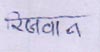 रिजवान